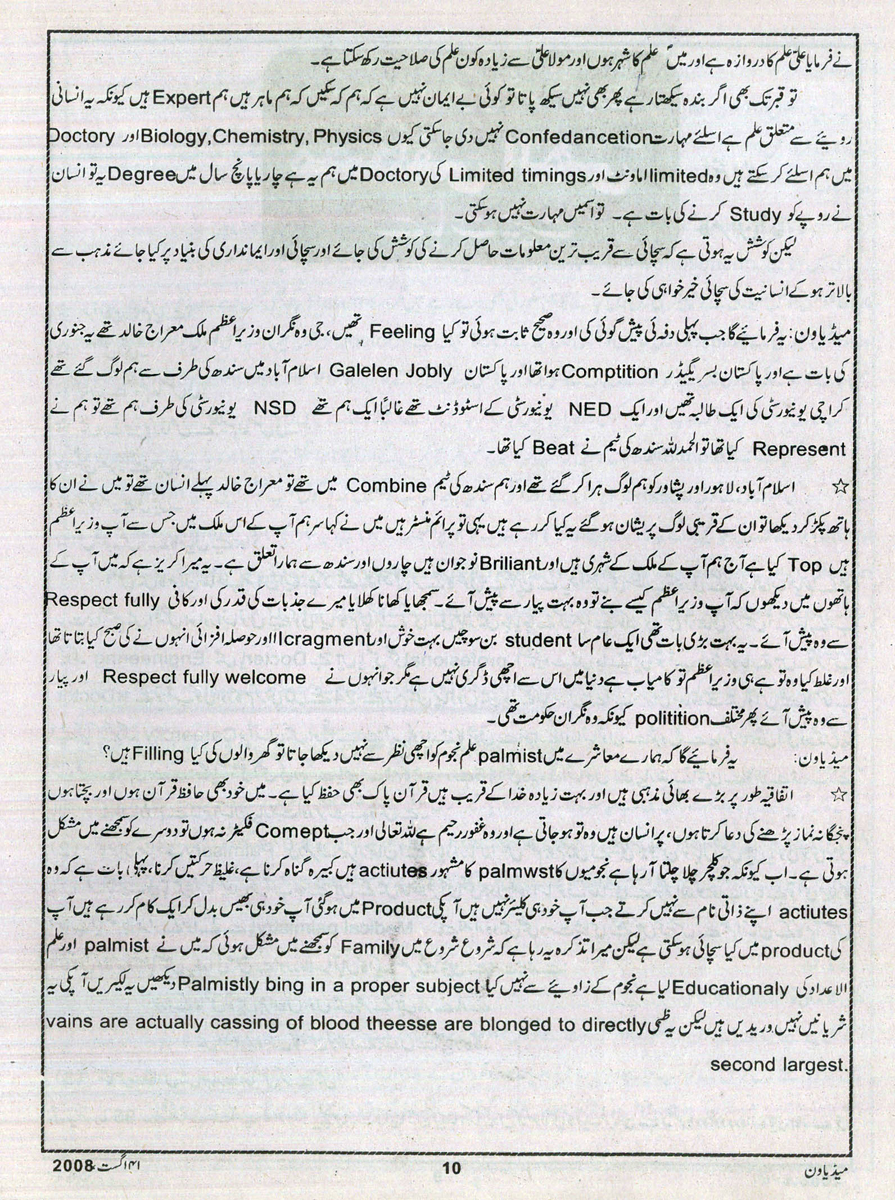 نے فرمایا علیؑ علم کا دروازہ ہے اور میںؐ علم کا شہر ہوں اور مولا علیؑ سے زیادہ کون علم کی صلاحیت رکھ سکتا ہے۔
تو قبر تک بھی اگر بندہ سیکھتا رہے پھر بھی نہیں سیکھ پاتا تو کوئی بے ایمان نہیں ہے کہ ہم کہ سکیں کہ ہم ماہر ہیں ہم Expert ہیں کیونکہ یہ انسانی
رویئے سے متعلق علم ہے اسلئے مہارت Confedancetion نہیں دی جا سکتی کیوں Biology,Chemistry, Physics اور Doctory
میں ہم اسلئے کر سکتے ہیں وہ limited اماونٹ اور Limited timings کی Doctory میں ہم یہ ہے چار یا پانچ سال میں Degree یہ تو انسان
نے روپے کو Study کرنے کی بات ہے۔ تو اسمیں مہارت نہیں ہو سکتی۔
لیکن کوشش یہ ہوتی ہے کہ سچائی سے قریب ترین معلومات حاصل کرنے کی کوشش کی جائے اور سچائی اور ایمانداری کی بنیاد پر کیا جائے مذہب سے
بالا تر ہو کے انسانیت کی سچائی خیر خواہی کی جائے۔
میڈیاون: یہ فرمائیے گا جب پہلی دفہ ئی پیش گوئی کی اور وہ صحیح ثابت ہوئی تو کیا Feeling تھیں، جی وہ نگران وزیر اعظم ملک معراج خالد تھے یہ جنوری
کی بات ہے اور پاکستان بسر یگیڈر Comptition ہوا تھا اور پاکستان Galelen Jobly اسلام آباد میں سندھ کی طرف سے ہم لوگ گئے تھے
کراچی یونیورسٹی کی ایک طالبہ تھیں اور ایک NED یونیورسٹی کے اسٹوڈنٹ تھے غالبًا ایک ہم تھے NSD یونیورسٹی کی طرف ہم تھے تو ہم نے
Represent کیا تھا تو الحمد للہ سندھ کی ٹیم نے Beat کیا تھا۔
☆ اسلام آباد، لاہور اور پشاور کو ہم لوگ ہرا کر گئے تھے اور ہم سندھ کی ٹیم Combine میں تھے تو معراج خالد پہلے انسان تھے تو میں نے ان کا
ہاتھ پکڑ کر دیکھا تو ان کے قریبی لوگ پریشان ہو گئے یہ کیا کر رہے ہیں یہی تو پرائم منسٹر ہیں میں نے کہا سر ہم آپ کے اس ملک میں جس سے آپ وزیر اعظم
ہیں Top کیا ہے آج ہم آپ کے ملک کے شہری ہیں اور Briliant نوجوان ہیں چاروں اور سندھ سے ہمارا تعلق ہے۔ یہ میرا کریز ہے کہ میں آپ کے
ہاتھوں میں دیکھوں کہ آپ وزیر اعظم کیسے بنے تو وہ بہت پیار سے پیش آئے۔ سمجھایا کھانا کھلایا میرے جذبات کی قدر کی اور کافی Respect fully
سے وہ پیش آئے۔ یہ بہت بڑی بات تھی ایک عام سا student بن سوچیں بہت خوش اور Icragment اور حوصلہ افزائی انہوں نے کی صبح کیا بتاتا تھا
اور غلط کیا وہ تو ہے ہی وزیر اعظم تو کامیاب ہے دنیا میں اس سے اچھی ڈگری نہیں ہے مگر جو انہوں نے Respect fully welcome اور پیار
سے وہ پیش آئے پھر مختلف politition کیونکہ وہ نگران حکومت تھی۔
میڈیاون: یہ فرمائیے گا کہ ہمارے معاشرے میں palmist علم نجوم کو اچھی نظر سے نہیں دیکھا جاتا تو گھر والوں کی کیا Filling ہیں؟
☆ اتفاقیہ طور پر بڑے بھائی مذہبی ہیں اور بہت زیادہ خدا کے قریب ہیں قرآن پاک بھی حفظ کیا ہے۔ میں خود بھی حافظ قرآن ہوں اور بچتا ہوں
پنجگانہ نماز پڑھنے کی دعا کرتا ہوں، پر انسان ہیں وہ تو ہو جاتی ہے اور وہ غفور رحیم ہے اللہ تعالی اور جب Comept فکیٹر نہ ہوں تو دوسرے کو سمجھنے میں مشکل
ہوتی ہے۔ اب کیونکہ جو کلچر چلا چلتا آ رہا ہے نجومیوں کا palmwst کا مشہور actiutes ہیں کبیرہ گناہ کرنا ہے، غلیظ حرکتیں کرنا، پہلی بات ہے کہ وہ
actiutes اپنے ذاتی نام سے نہیں کرتے جب آپ خود ہی کلیئر نہیں ہیں آپکی Product میں ہو گئی آپ خود ہی بھیس بدل کر ایک کام کر رہے ہیں آپ
کی product میں کیا سچائی ہو سکتی ہے لیکن میرا تذکرہ یہ رہا ہے کہ شروع شروع میں Family کو سمجھنے میں مشکل ہوئی کہ میں نے palmist اور علم
الاعداد کی Educationaly لیا ہے نجوم کے زاویئے سے نہیں کیا Palmistly bing in a proper subject دیکھیں یہ لکیریں آپکی یہ
شریانیں نہیں وریدیں ہیں لیکن یہ طبی vains are actually cassing of blood theesse are blonged to directly
second largest.
میڈیاون 10 ۱۴ اگست 2008